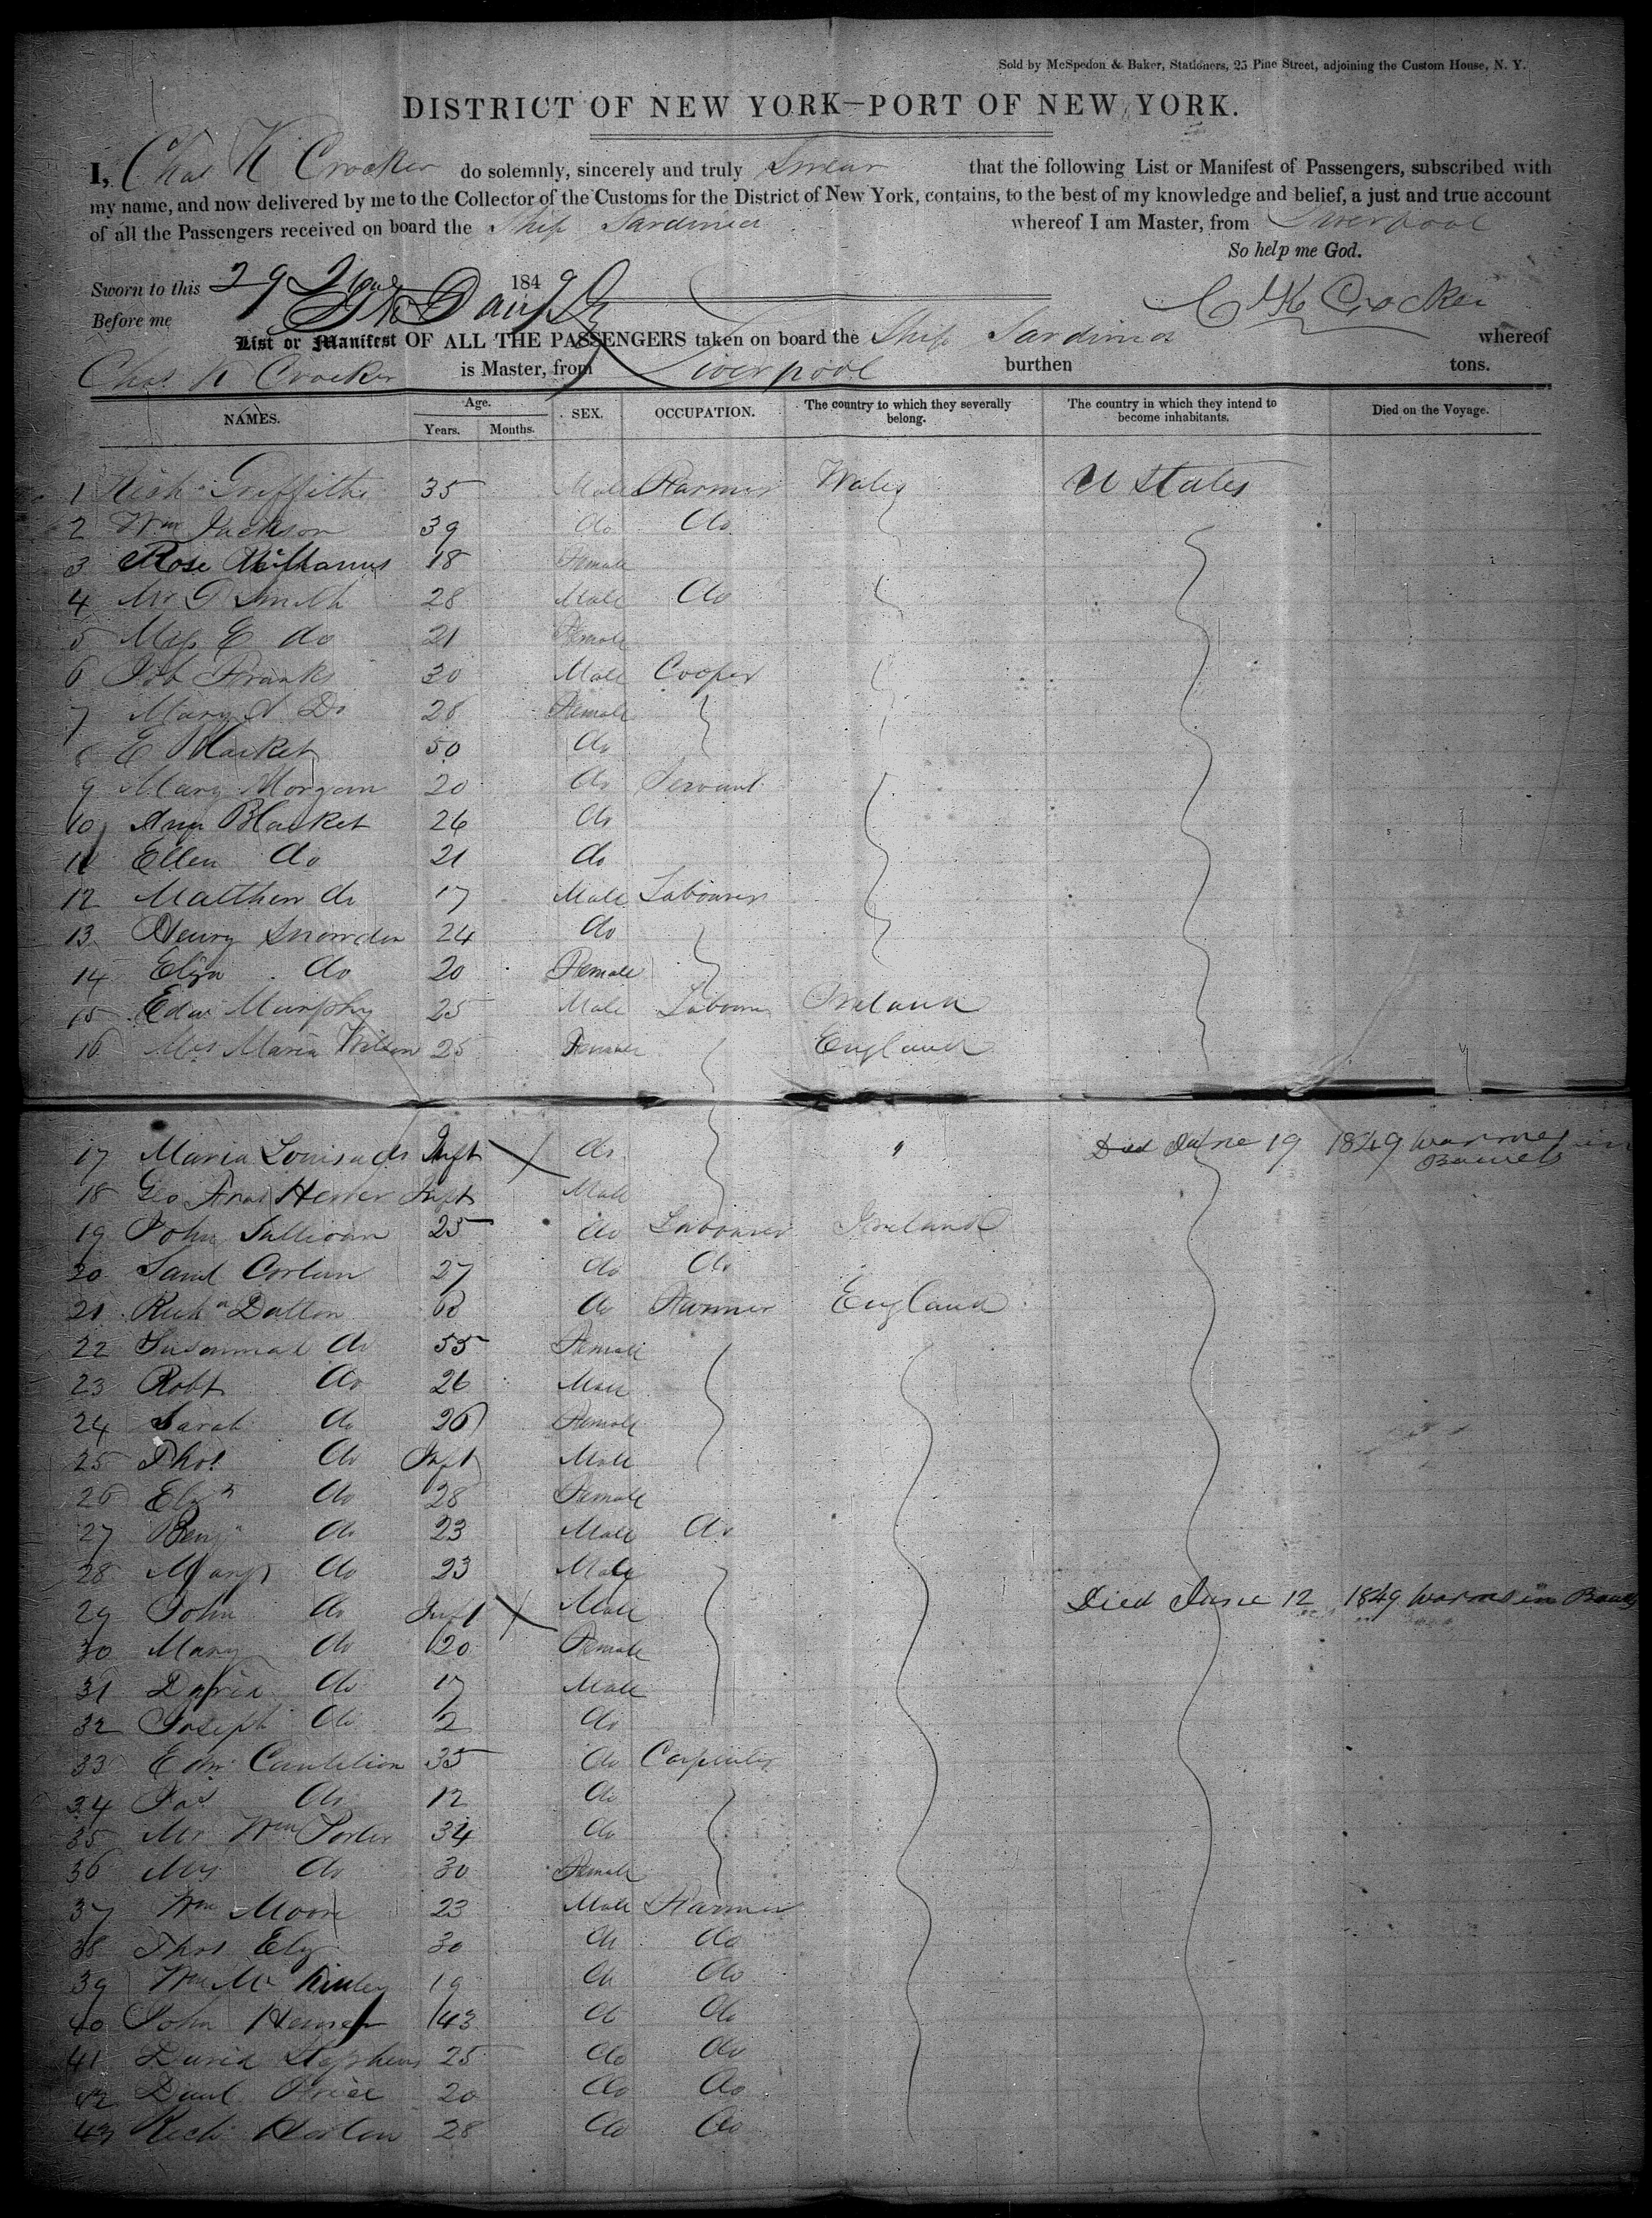 Sold by McSpedon & Baker, Stationers, 25 Pine Street, adjoining the Custom House, N. Y.
DISTRICT OF NEW YORK—PORT OF NEW YORK.
I, Chas K Crocker do solemnly, sincerely and truly Swear that the following List or Manifest of Passengers, subscribed with
my name, and now delivered by me to the Collector of the Customs for the District of New York, contains, to the best of my knowledge and belief, a just and true account
of all the Passengers received on board the Ship Sardinia whereof I am Master, from Liverpool
So help me God.
Sworn to this 29 1849
Before me C K Crocker
List or Manifest OF ALL THE PASSENGERS taken on board the Ship Sardinia whereof
Chas K Crocker is Master, from Liverpool burthen tons.
NAMES. Age. Years. Months. SEX. OCCUPATION. The country to which they severally belong. The country in which they intend to become inhabitants. Died on the Voyage.
1 Richd Griffiths 35 Male Farmer Wales U States
2 Wm Jackson 39 do do
3 Rose 18 Female
4 Mr G Smith 28 Male do
5 E do 21 Female
6 Job Franks 30 Male Cooper
7 Mary A Do 28 Female
8 E Blacket 50 do
9 Mary Morgan 20 do Servant
10 Ann Blacket 26 do
11 Ellen do 21 do
12 Matthew do 17 Male Labourer
13 Henry Snowden 24 do
14 Eliza do 20 Female
15 Edwd Murphy 25 Male Labourer Ireland
16 Mrs Maria Wilson 25 Female England
17 Maria Louisa do Inft X do " Died June 19 1849 worms in Bowels
18 Geo Fras Inft Male
19 John Sullivan 25 do Labourer Ireland
20 Saml 27 do do
21 Richd Dalton 60 do Farmer England
22 Susannah do 55 Female
23 Robt do 26 Male
24 Sarah do 26 Female
25 Thos do Inft Male
26 Elizth do 28 Female
27 Benjn do 23 Male do
28 Mary do 23 Male
29 John do Inft X Male Died June 12 1849 worms in Bowels
30 Mary do 20 Female
31 David do 17 Male
32 Joseph do 2 do
33 Edw 35 do Carpenter
34 Jas do 12 do
35 Mr Wm Porter 34 do
36 Mrs do 30 Female
37 Wm Moore 23 Male Farmer
38 Thos Ely 30 do do
39 Wm Mc 19 do do
40 John 43 do do
41 David Stephens 25 do do
42 Danl Price 20 do do
43 Richd 28 do do